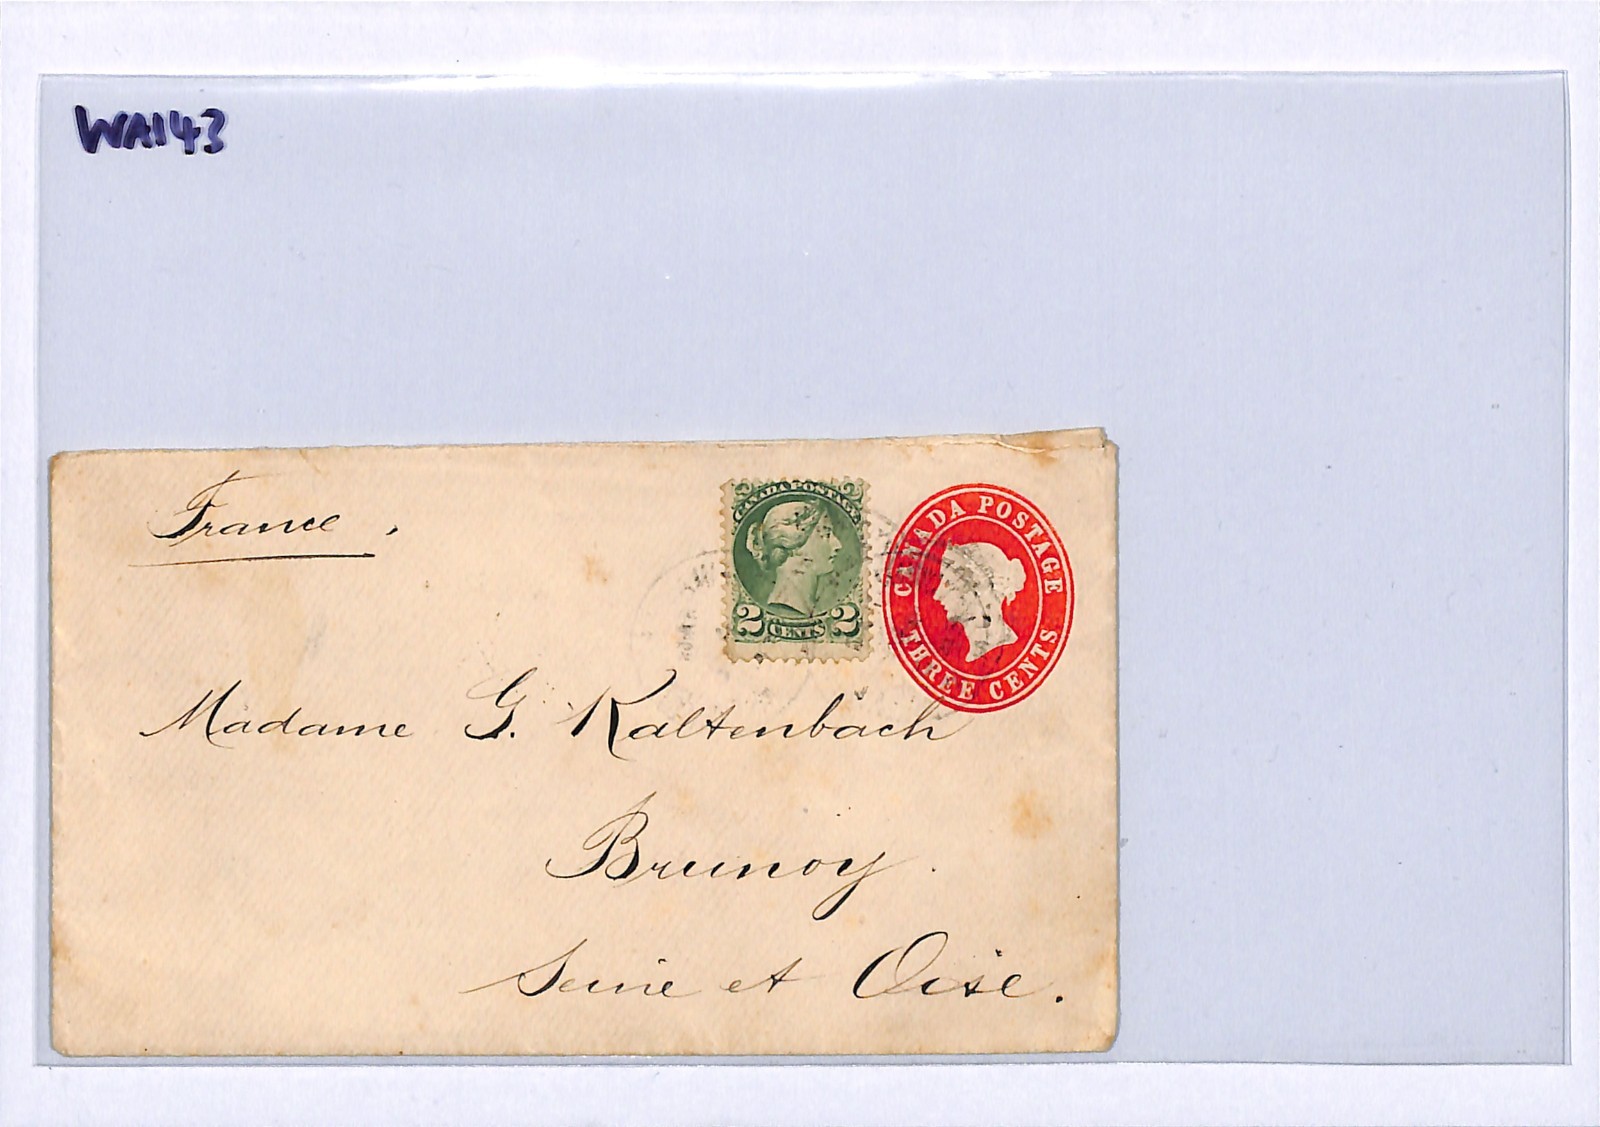 WA143
France.
CANADA POSTAGE
2 CENTS 2
CANADA POSTAGE
THREE CENTS
Madame G. Kaltenbach
Brunoy.
Seine et Oise.